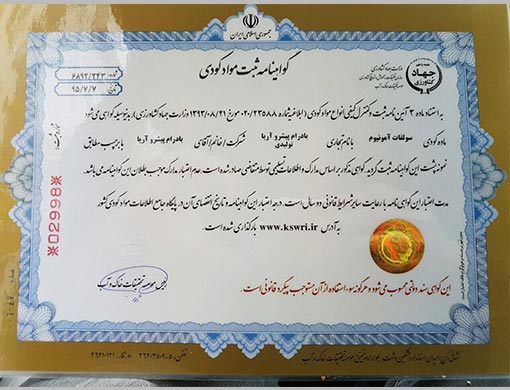 جمهوری اسلامی ایران
گواهینامه ثبت مواد کودی
شماره: ۶۸۹۲/۲۴۳
تاریخ: ۹۵/۷/۷
وزارت جهاد کشاورزی
جهاد کشاورزی
به استناد ماده ۲ آئین نامه ثبت و کنترل کیفی انواع مواد کودی (ابلاغیه شماره ۰۲۰/۲۳۵۸۸ مورخ ۱۳۹۳/۰۸/۲۱ وزارت جهاد کشاورزی)، بدینوسیله گواهی می شود
ماده کودی سولفات آمونیوم با نام تجاری پادرام پیشرو آریا تولیدی شرکت/خانم/آقای پادرام پیشرو آریا با برچسب مطابق
نمونه پشت این گواهینامه ثبت گردید. گواهی مذکور بر اساس مدارک و اطلاعات تسلیمی توسط متقاضی صادر شده است. عدم اعتبار مدارک موجب بطلان این گواهینامه می باشد.
مدت اعتبار این گواهی نامه با رعایت سایر شرایط قانونی دو سال است. درجه اعتبار این گواهینامه و تاریخ انقضای آن در پایگاه جامع اطلاعات مواد کودی کشور
به آدرس www.kswri.ir بارگذاری شده است.
این گواهی سند دولتی محسوب می شود و هرگونه سوء استفاده از آن مستوجب پیگرد قانونی است.
رئیس موسسه تحقیقات خاک و آب
02998